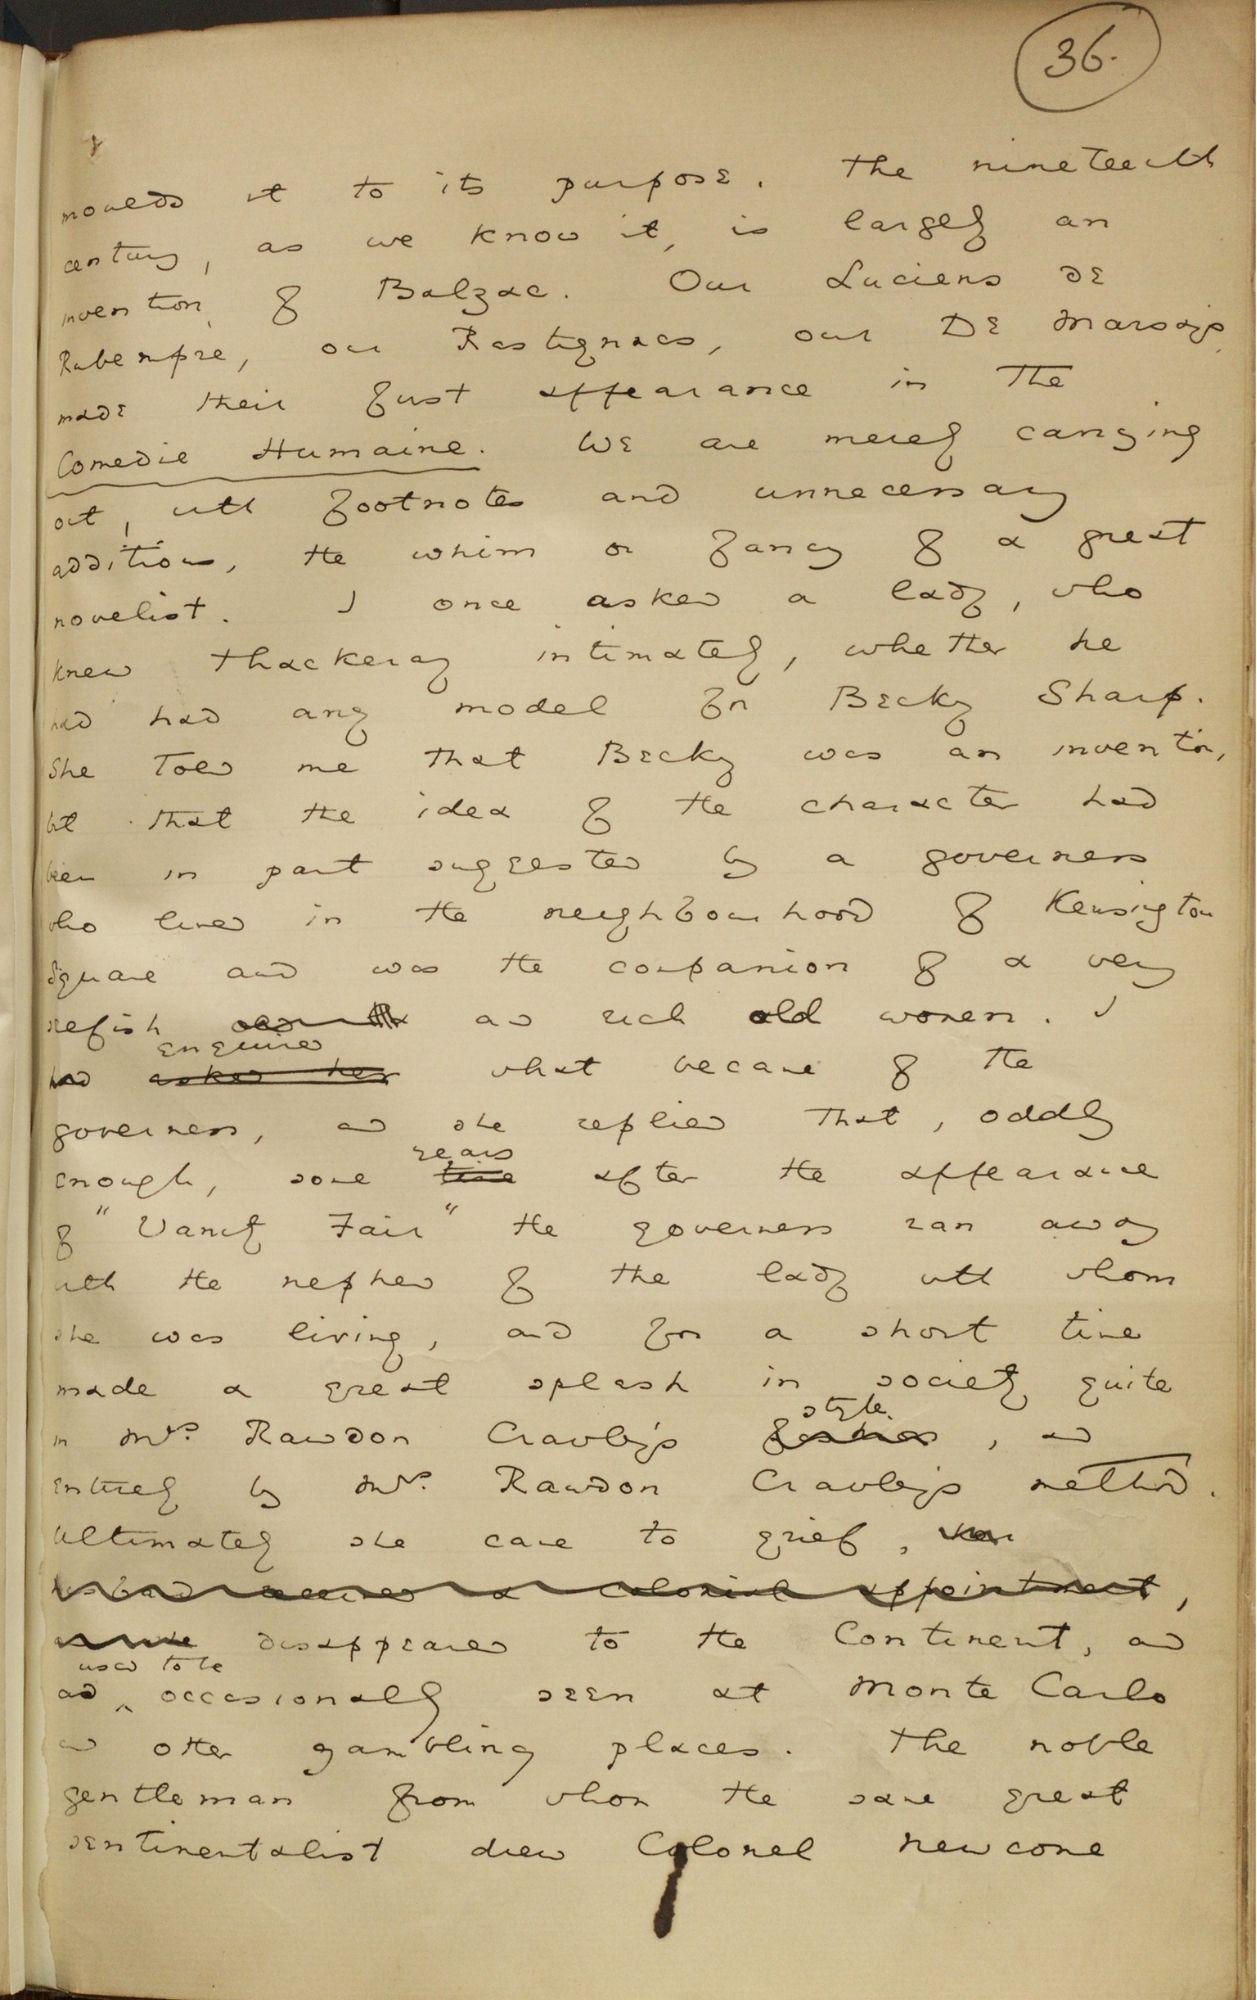 36.
moulds it to its purpose. The nineteenth
century, as we know it, is largely an
invention of Balzac. Our Luciens de
Rubempre, our Rastignacs, our De Marsays
made their first appearance in the
Comedie Humaine. We are merely carrying
out, with footnotes and unnecessary
additions, the whim or fancy of a great
novelist. I once asked a lady, who
knew Thackeray intimately, whether he
had had any model for Becky Sharp.
She told me that Becky was an invention,
but that the idea of the character had
been in part suggested by a governess
who lived in the neighbourhood of Kensington
Square and was the companion of a very
selfish and rich old woman. I
enquired
had asked her what became of the
governess, and she replied that, oddly
years
enough, some time after the appearance
of "Vanity Fair" the governess ran away
with the nephew of the lady with whom
she was living, and for a short time
made a great splash in society, quite
style
in Mrs. Rawdon Crawley's fashion, and
entirely by Mrs. Rawdon Crawley's method.
Ultimately she came to grief, her
husband received a colonial appointment,
disappeared to the Continent, and
used to be
and ^ occasionally seen at Monte Carlo
and other gambling places. The noble
gentleman from whom the same great
sentimentalist drew Colonel Newcome